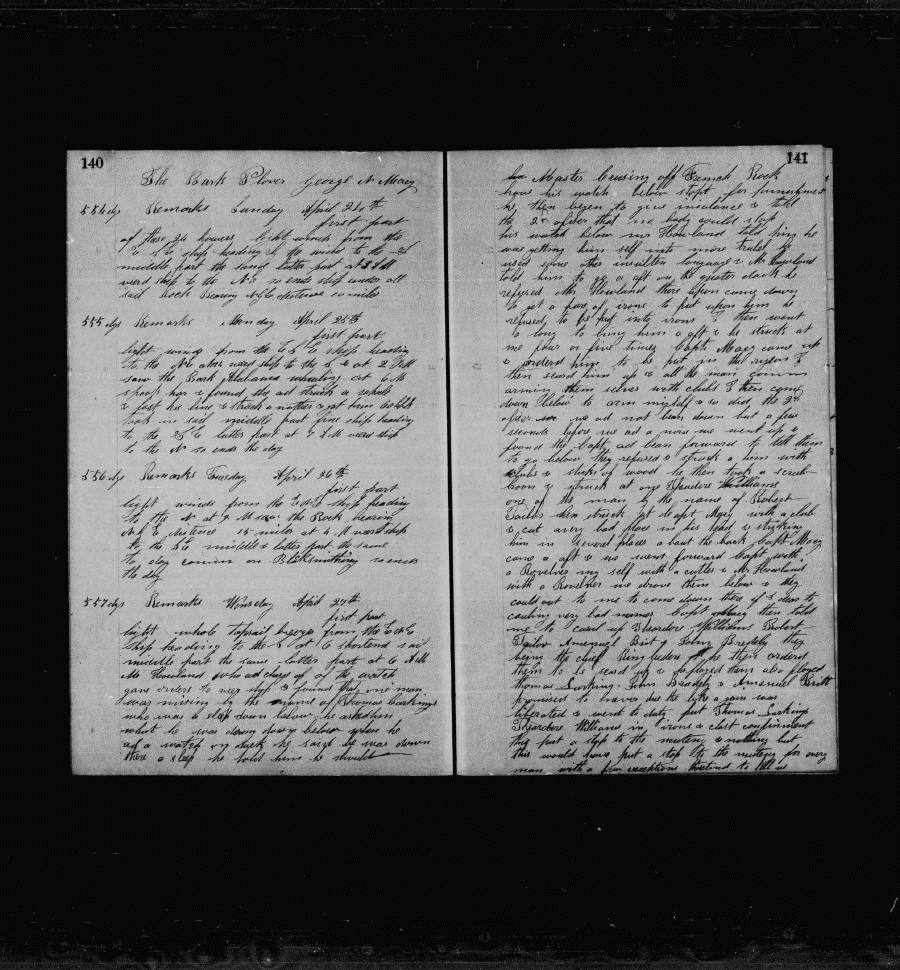 140
The Bark Plover George N Macy
554 dys Remarks Sunday April 24th
first part
of these 24 howers light winds from the
E S E ship heading to the to the
middle part the same latter part
ward ship to the N E so ends ship under all
sail Rock Bearing N E distence 20 miles
555 dys Remarks Monday April 25th
first part
light winds from the E S E ship heading
to the N E other ward ship to the S E at 2 PM
saw the Bark Alabama whealing at 6 M
spoop her & found she ad struck a whale
& fast his line & struck a nother & got him
took in sail middle part fine ship heading
to the S E latter part at 7 A M ward ship
to the N so ends the day
556 dys Remarks Tuesday April 26th
first part
light winds from the E N E ship heading
to the N at 9 M saw the Rock bearing
N E distence 15 miles at 4 M ward ship
to the S E middle & latter part the same
to day comin on Blacksmithing so ends
the day
557 dys Remarks Winsday April 27th
first part
light whole topsail breeze from the E N E
ship heading to the S at 6 shortend sail
middle part the same latter part at 6 A M
Mr Howland who ad charge of of the watch
gave orders to and found that one man
was missing by the name of Thomas Larkings
who was a slep down below he asked him
what he was doing down below when he
ad a watch on deck he said he was down
there a sleep he told him he should
141
Master Crusing off French Rock
have his watch below stopt for
he then began to give insolence & told
the 2nd ofiser that no body could stop
his watch below Mr Howland told him he
was getting him self into more truble he
used some other insulten language & Mr Howland
told him to go a aft on the quater deck he
refused Mr Howland there upon came down
to get a pare of irons to put upon him he
refused to be put into irons I then went
a long to bring him a aft & he struck at
me four or five times Capt Macy came up
& orderd him to be put in the rigon I
then seased him up & all the man comin
arming them selves with clubs I then came
down below to arm myself & so did the 2nd
ofiser we ad not bean down but a few
seconds before we ad a noise we went up &
found the Capt ad bean forward to tell them
to go below they refused & struck a him with
clubs & sticks of wood he then took a scrub
broom & struck at one Theadore Williams
one of the man by the name of Robert
Tailor then struck at Capt Macy with a club
& cut avery bad place in his head & striking
him in several places a bout the back Capt Macy
came a aft & we went forward Capt with
a Rovelver my self with a cutles & Mr Howland
with a Rovelver we drove them below & they
could out to me to come down there if I dare to
cauling very bad names Capt Macy then told
me to caul up Theadore Williams Robert
Tailor Amenuel Brit & John Bradely they
being the chief Ring leaders he then ordered
them to be seased up & floged them also floged
Thomas Larking John Bradely & Amenuel Britt
promised to haver due the like a gain was
liberated & went to duty put Thomas Larkings
Theardore Williams in irons & clost confinment
this put a stop to the muteny & nothing but
this would have put a stop to the muteny for every
man with a few exceptions thretend to kill us